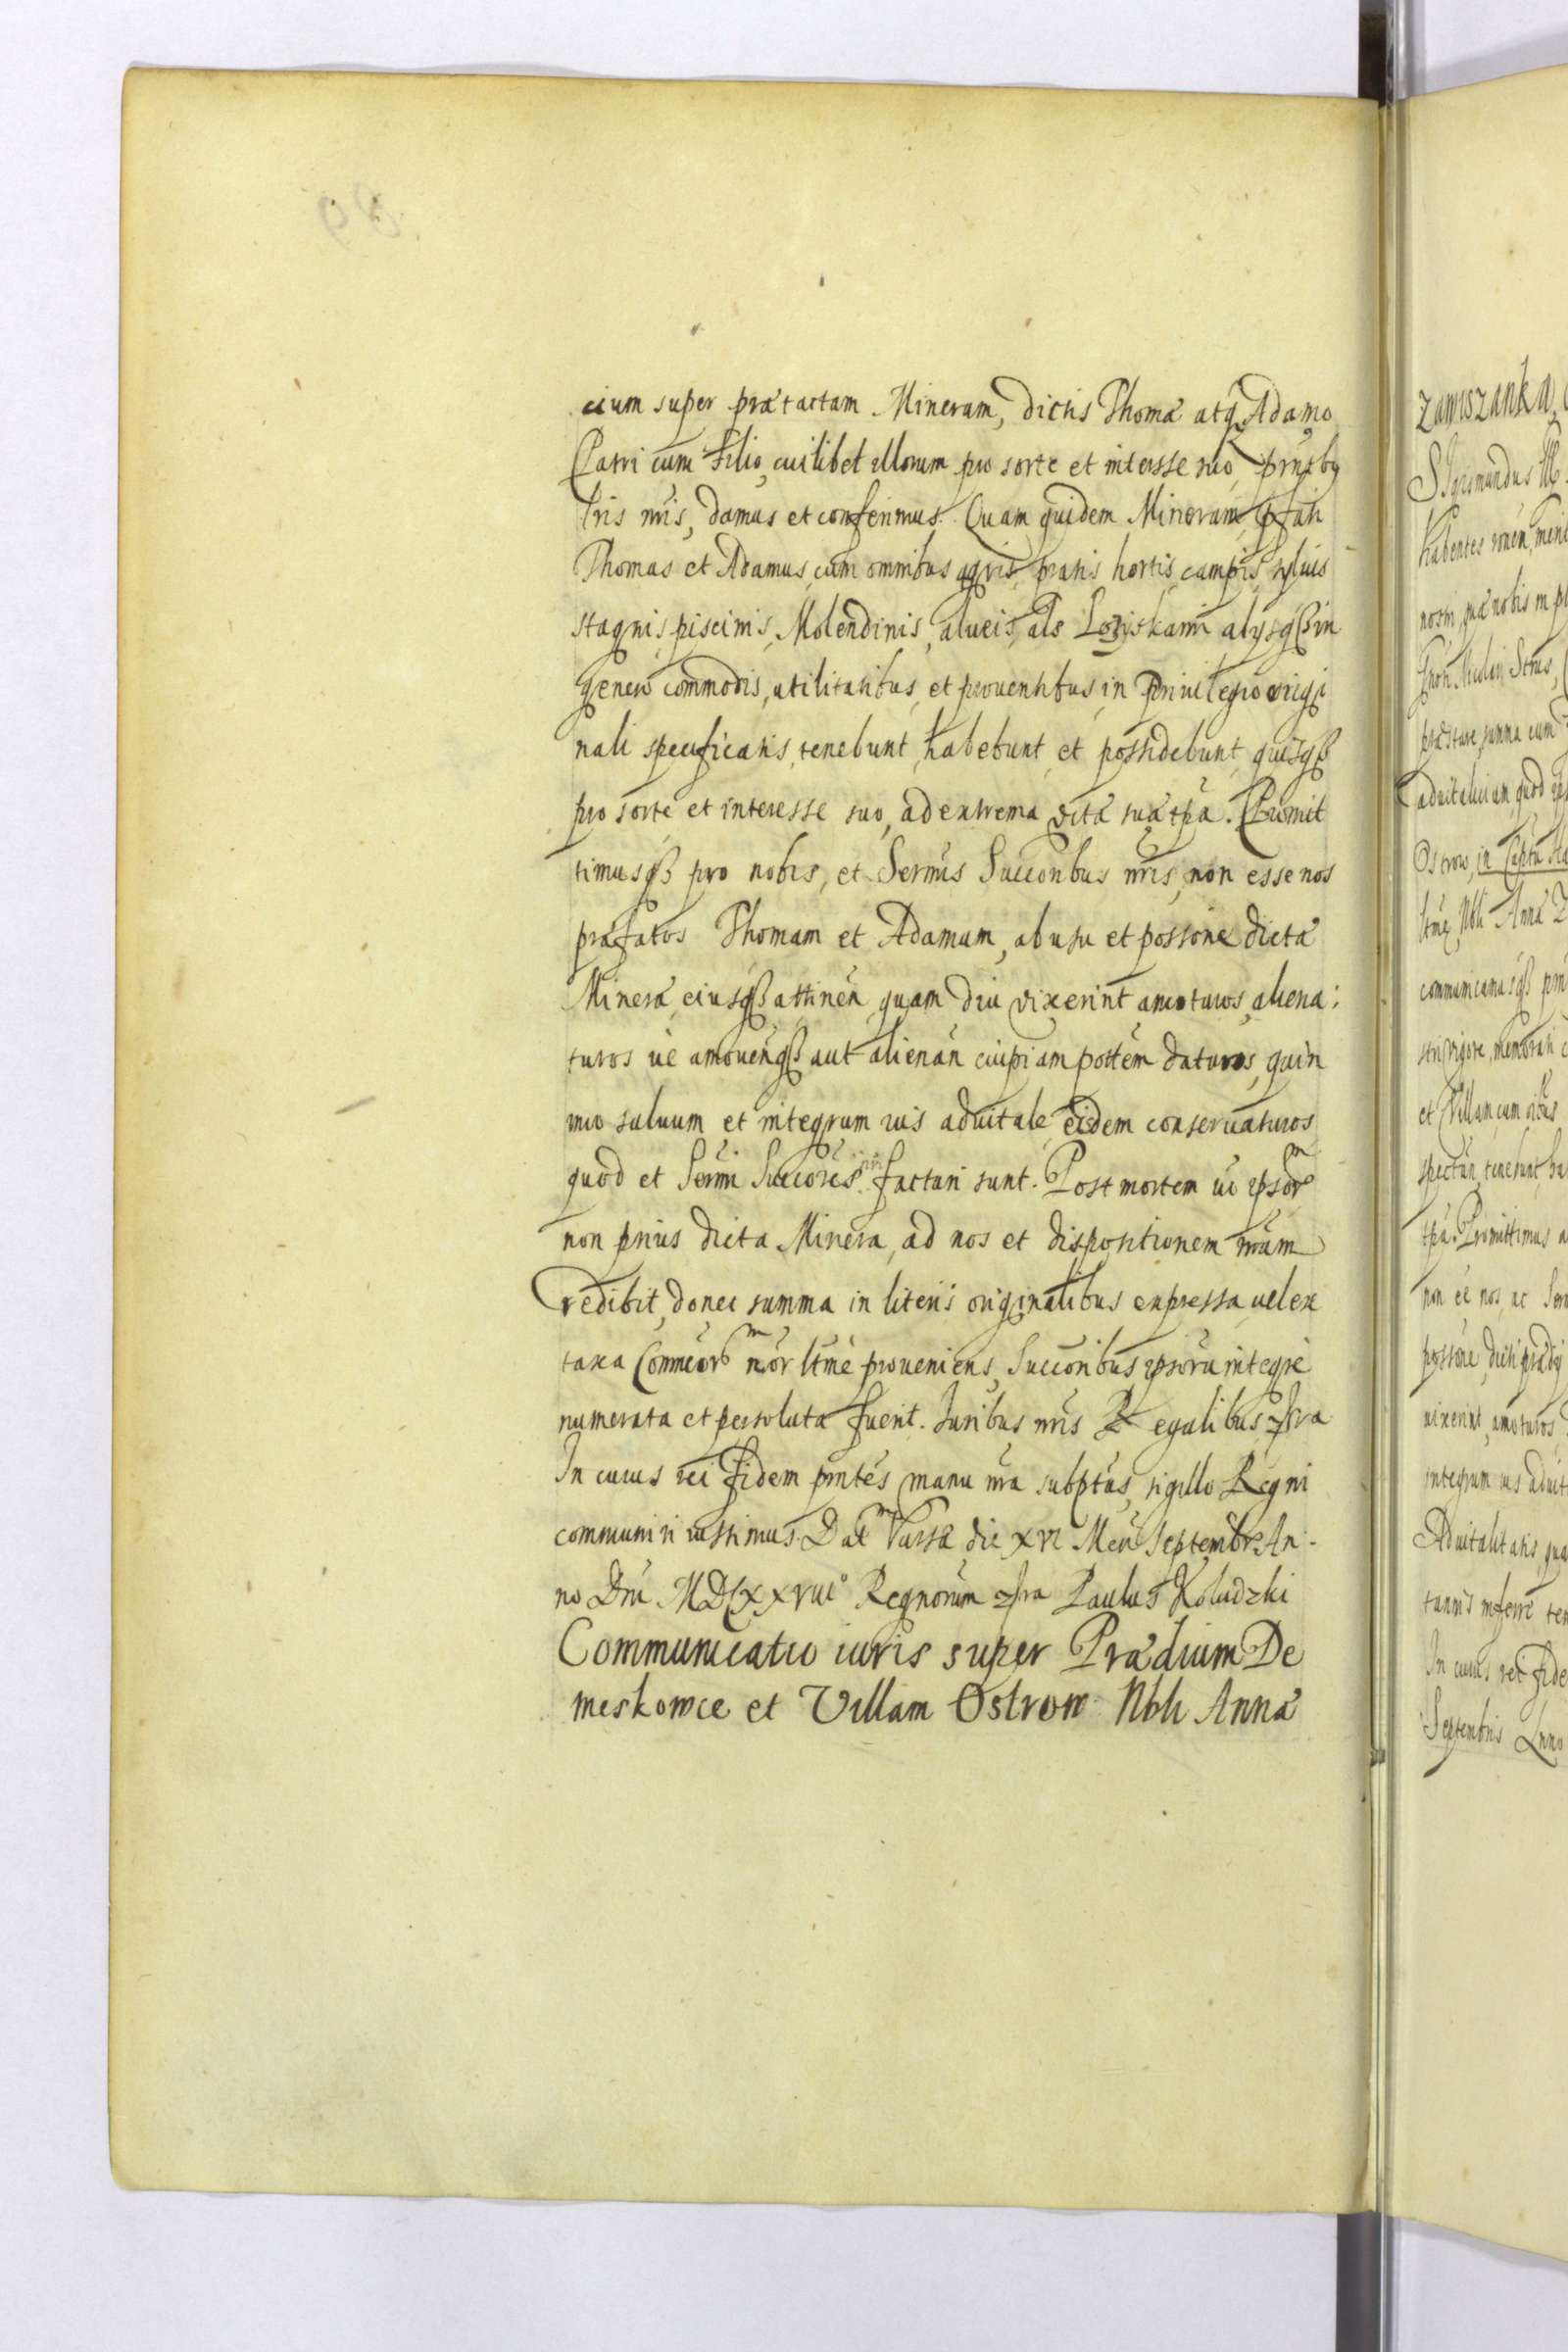 cium super prætactam Mineram, dictis Thomæ atq Adamo
Patri cum Filio, cuilibet illorum pro sorte et interesse suo, pntibg
lris nris, damus et conferimus. Quam quidem Mineram, pfati
Thomas et Adamus, cum omnibus agris, pratis hortis, campis, syluis
stagnis, piscinis, Molendinis, alueis, als Lozyskami alysqß in
genere commodis, utilitatibus, et prouentibus, in Priuilegio origi
nali specificatis, tenebunt, habebunt, et possidebunt, quisqß
pro sorte et interesse suo, ad extrema vitæ suæ tpa. Promit
timusqß pro nobis, et Sermis Succoribus nris, non esse nos
præfatos Thomam et Adamum, ab usu et possone dictæ
Mineræ, eiusqß attinen, quam diu vixerint amoturos, aliena:
turos ue amouenqß aut alienan cuipiam pottem daturos, quin
imo saluum et integrum ius aduitale eisdem conseruaturos
quod et Sermi Succores nri facturi sunt. Post mortem uo ipsor
non prius dicta Minera, ad nos et dispositionem nram
redibit, donec summa in literis originalibus expressa, uel ex
taxa Commeor nror ltme proueniens, Succoribus ipsoru integre
numerata et persoluta fuerit. Iuribus nris Regalibus
In cuius rei fidem pntes manu nra subptas, sigillo Regni
communiri iussimus. Dat Varsæ die XVI Men Septembr An
no Dni MDCXXVIIIo Regnorum Paulus Koludzki
Communicatio iuris super Prædium De
meskowce et Villam Ostrow Nbli Annæ
zawiszanka
Sigismundus III
habentes ronen
nostri, quæ nobis in
præstare, summa cum
aduitalium, quod
Ostrow, in
ltme Nbli Annæ
communicamusqß
et Villam, cum
spectan, tenebunt
tpa. Promittimus
non ee nos, ac
possone, dicti prædij
uixerint, amoturos
integrum ius aduit
Aduitalitatis, qua
tannis inferre
In cuius rei fide
Septembris Anno